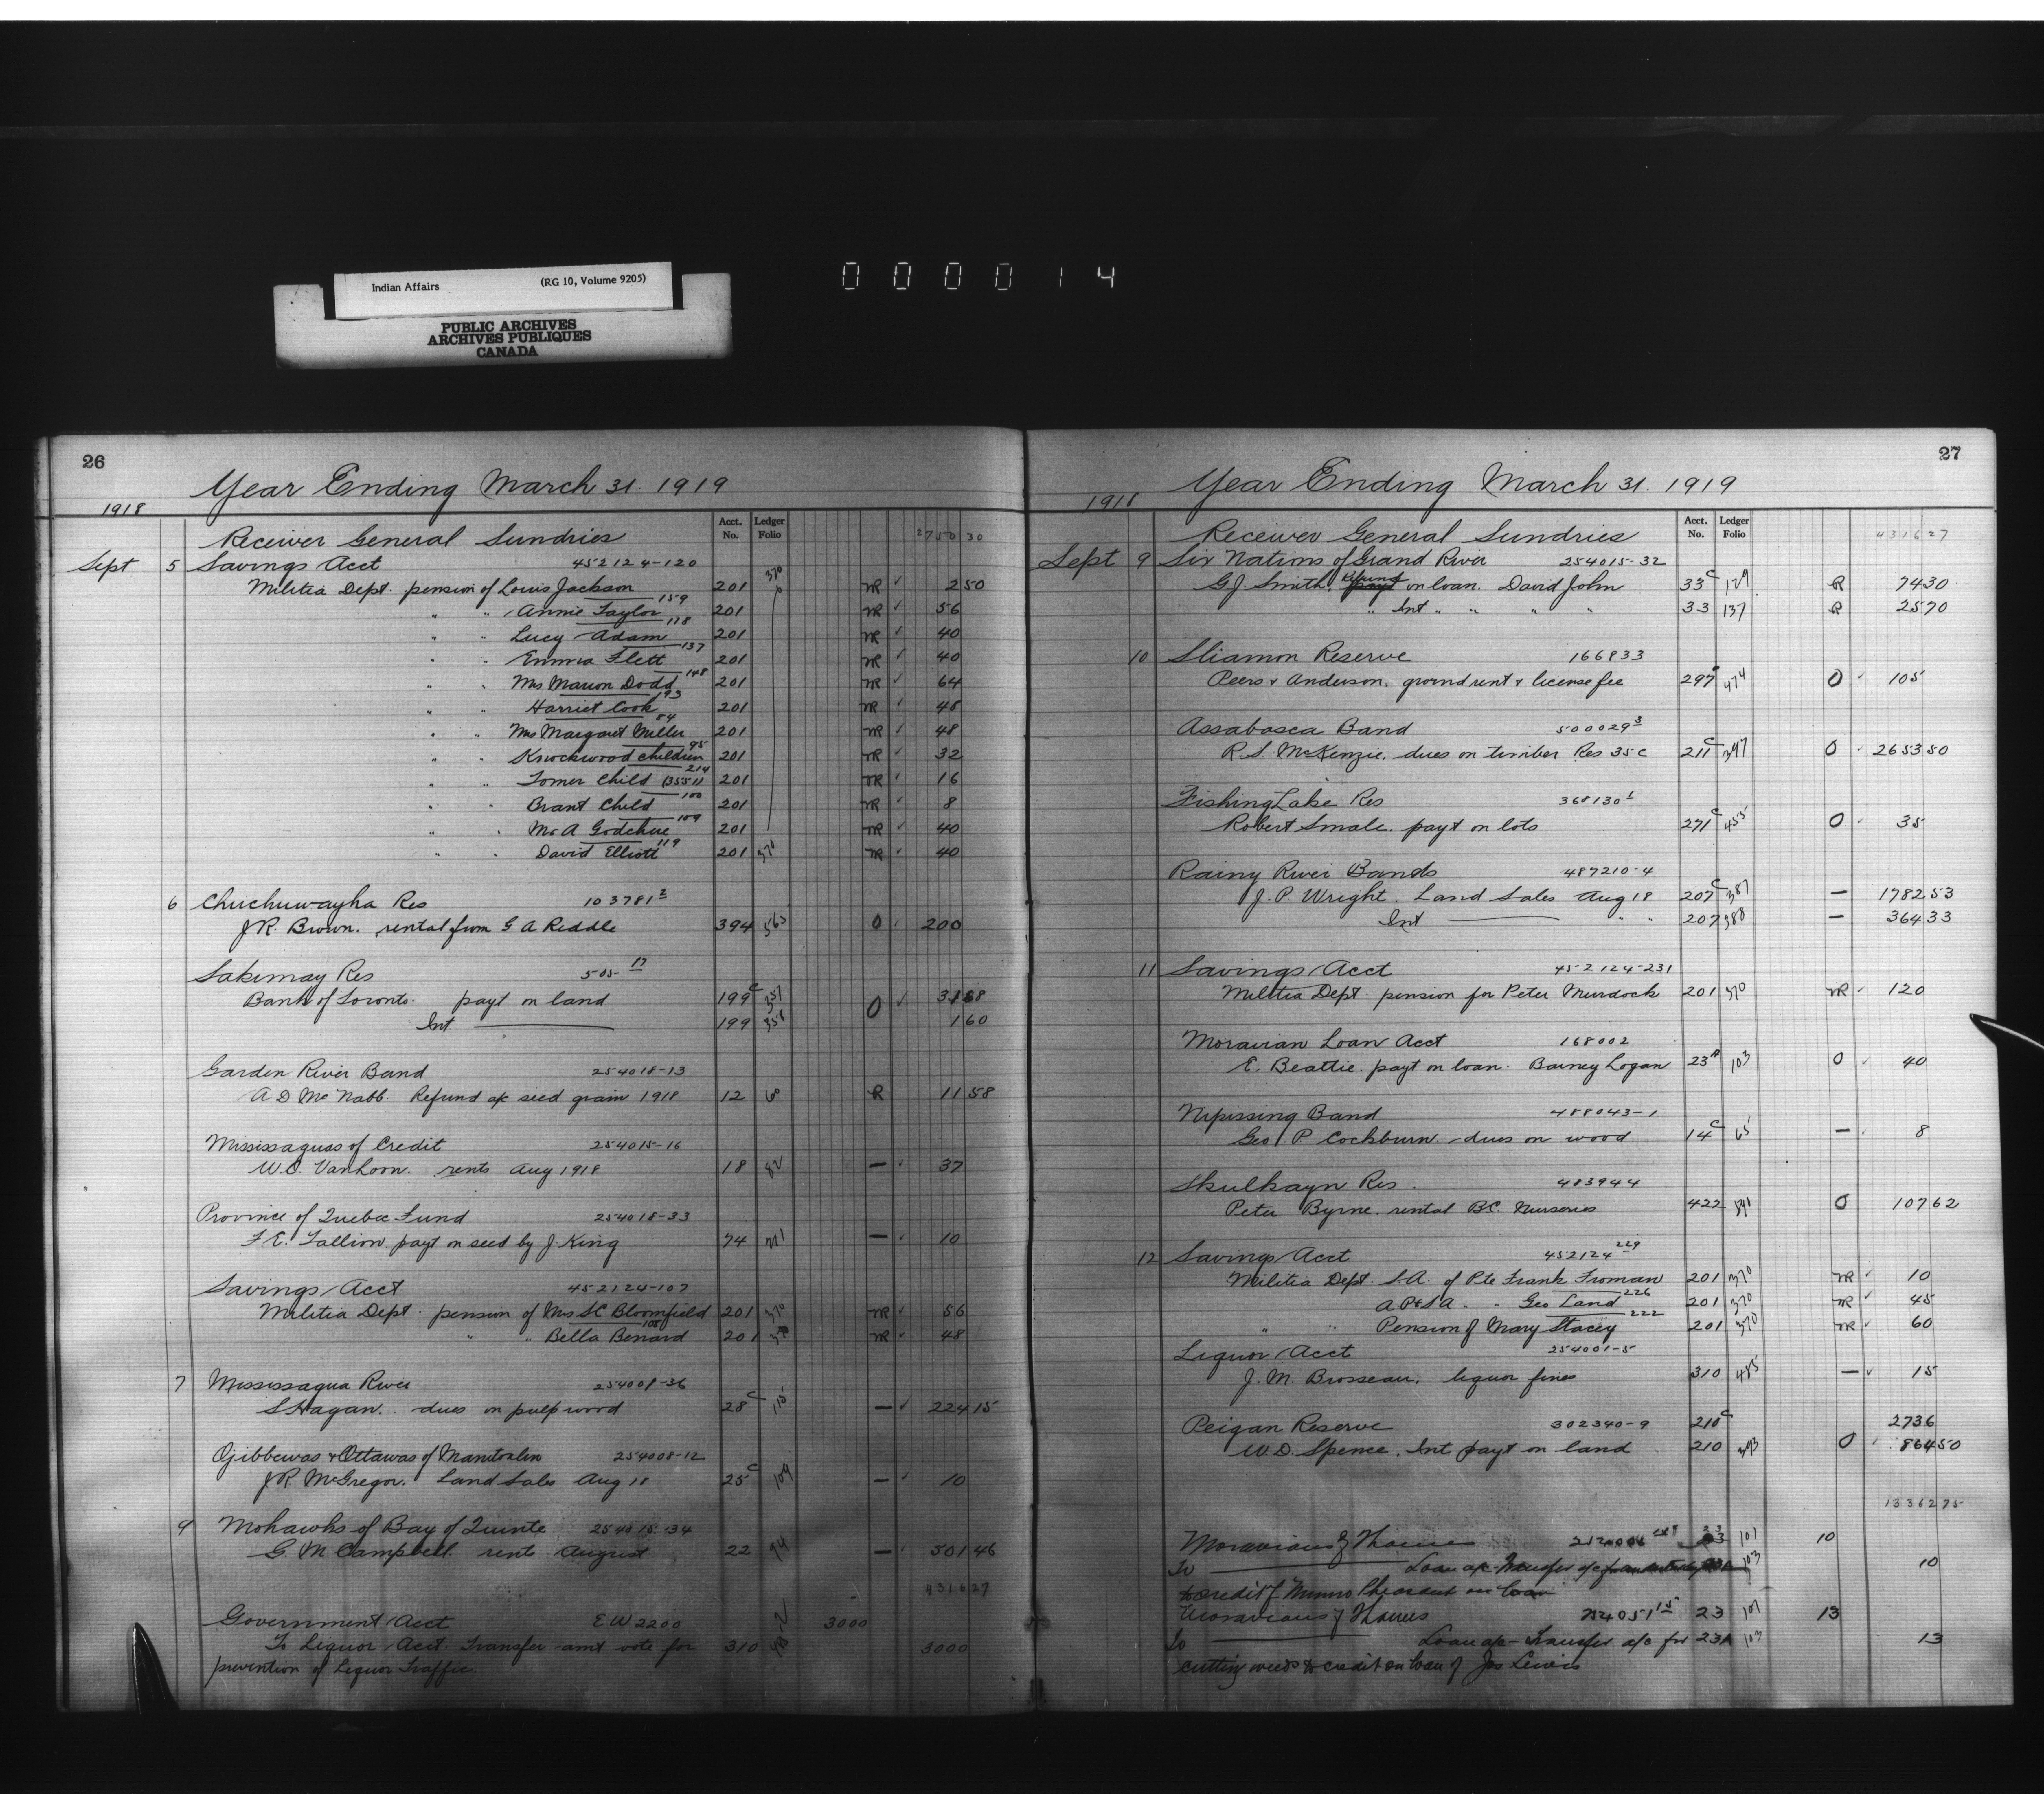 Indian Affairs (RG 10, Volume 9205)
PUBLIC ARCHIVES
ARCHIVES PUBLIQUES
CANADA
000014
26
Year Ending March 31. 1919
1918
Acct. No. Ledger Folio
Receiver General Sundries 2750 30
Sept 5 Savings Acct 452124-120
Militia Dept. pension of Louis Jackson 201 370 NR ✓ 2 50
" " Annie Taylor 159 201 NR ✓ 56
" " Lucy Adam 118 201 NR ✓ 40
" " Emma Flett 137 201 NR ✓ 40
" " Mrs Marion Dodd 148 201 NR ✓ 64
" " Harriet Cook 193 201 NR ✓ 48
" " Mrs Margaret Miller 84 201 NR ✓ 48
" " Knockwood children 95 201 NR ✓ 32
" " Tomer Child (3551) 214 201 NR ✓ 16
" " Brant Child 100 201 NR ✓ 8
" " Mrs A Godchue 109 201 NR ✓ 40
" " David Elliott 119 201 370 NR ✓ 40
6 Chuchuwayha Res 103781 2
J R. Brown. rental from G A Riddle 394 563 O 200
Sakimay Res 505 17
Bank of Toronto. payt on land 199 C 357 O ✓ 31 68
Int 199 358 1 60
Garden River Band 254018-13
A D McNabb Refund a/c seed grain 1918 12 60 R 11 58
Mississaguas of Credit 254015-16
W.C. VanLoon. rents Aug 1918 18 82 — ✓ 37
Province of Quebec Fund 254018-33
F. E. Fallion. payt on seed by J. King 74 — 10
Savings Acct 452124-107
Militia Dept. pension of Mrs S C Bloomfield 201 370 NR ✓ 56
" " Bella Benard 108 201 370 NR 48
7 Mississagua River 254008-36
S Hagan. dues on pulpwood 28 C 115 — ✓ 224 15
Ojibbewas & Ottawas of Manitoulin 254008-12
J R. McGregor. Land Sales Aug 18 25 C 109 — 10
9 Mohawks of Bay of Quinte 254015-34
G. M Campbell. rents August 22 94 — 501 46
4316 27
Government Acct E W 2200 3000
To Liquor Acct. Transfer amt vote for 310 3000
prevention of Liquor Traffic.
27
Year Ending March 31. 1919
1918
Acct. No. Ledger Folio
Receiver General Sundries 4316 27
Sept 9 Six Nations of Grand River 254015-32
G J. Smith. Refund on loan. David John 33 C 129 R 74 30
" Int " " " " 33 137 R 25 70
10 Sliamon Reserve 166833
Peers & Anderson. ground rent & license fee 297 474 O 105
Assabasca Band 500029 3
R. S. McKenzie. dues on timber Res 35 C 211 C 397 O 2653 50
Fishing Lake Res 368130 1
Robert Smale. payt on lots 271 C 455 O 35
Rainy River Bands 487210-4
J. P. Wright. Land Sales Aug 18 207 C 387 — 1782 53
Int " " 207 388 — 364 33
11 Savings Acct 452124-231
Militia Dept. pension for Peter Murdock 201 370 NR 120
Moravian Loan Acct 168002
E. Beattie. payt on loan. Barney Logan 23 A 103 O ✓ 40
Nipissing Band 488043-1
Geo P Cockburn dues on wood 14 C 65 — 8
Skulkayn Res. 483944
Peter Byrne. rental B.C. Nurseries 422 590 O 107 62
12 Savings Acct 452124 229
Militia Dept. S.A. of Pte Frank Froman 201 370 NR ✓ 10
A.P & S A. " Geo Land 226 201 370 NR ✓ 45
" " Pension of Mary Stacey 222 201 370 NR ✓ 60
Liquor Acct 254001-5
J. M. Brosseau. liquor fines 310 485 — ✓ 15
Peigan Reserve 302340-9 210 C 2736
W. D. Spence. Int payt on land 210 393 O 864 50
13362 75
Moravians of Thames 23 101 10
To Loan a/c transfer a/c 103 10
to credit of on loan
Moravians of Thames 254051 15 23 101 13
To Loan a/c - Transfer a/c for 23A 103 13
cutting weeds to credit on loan of Jas Lewis